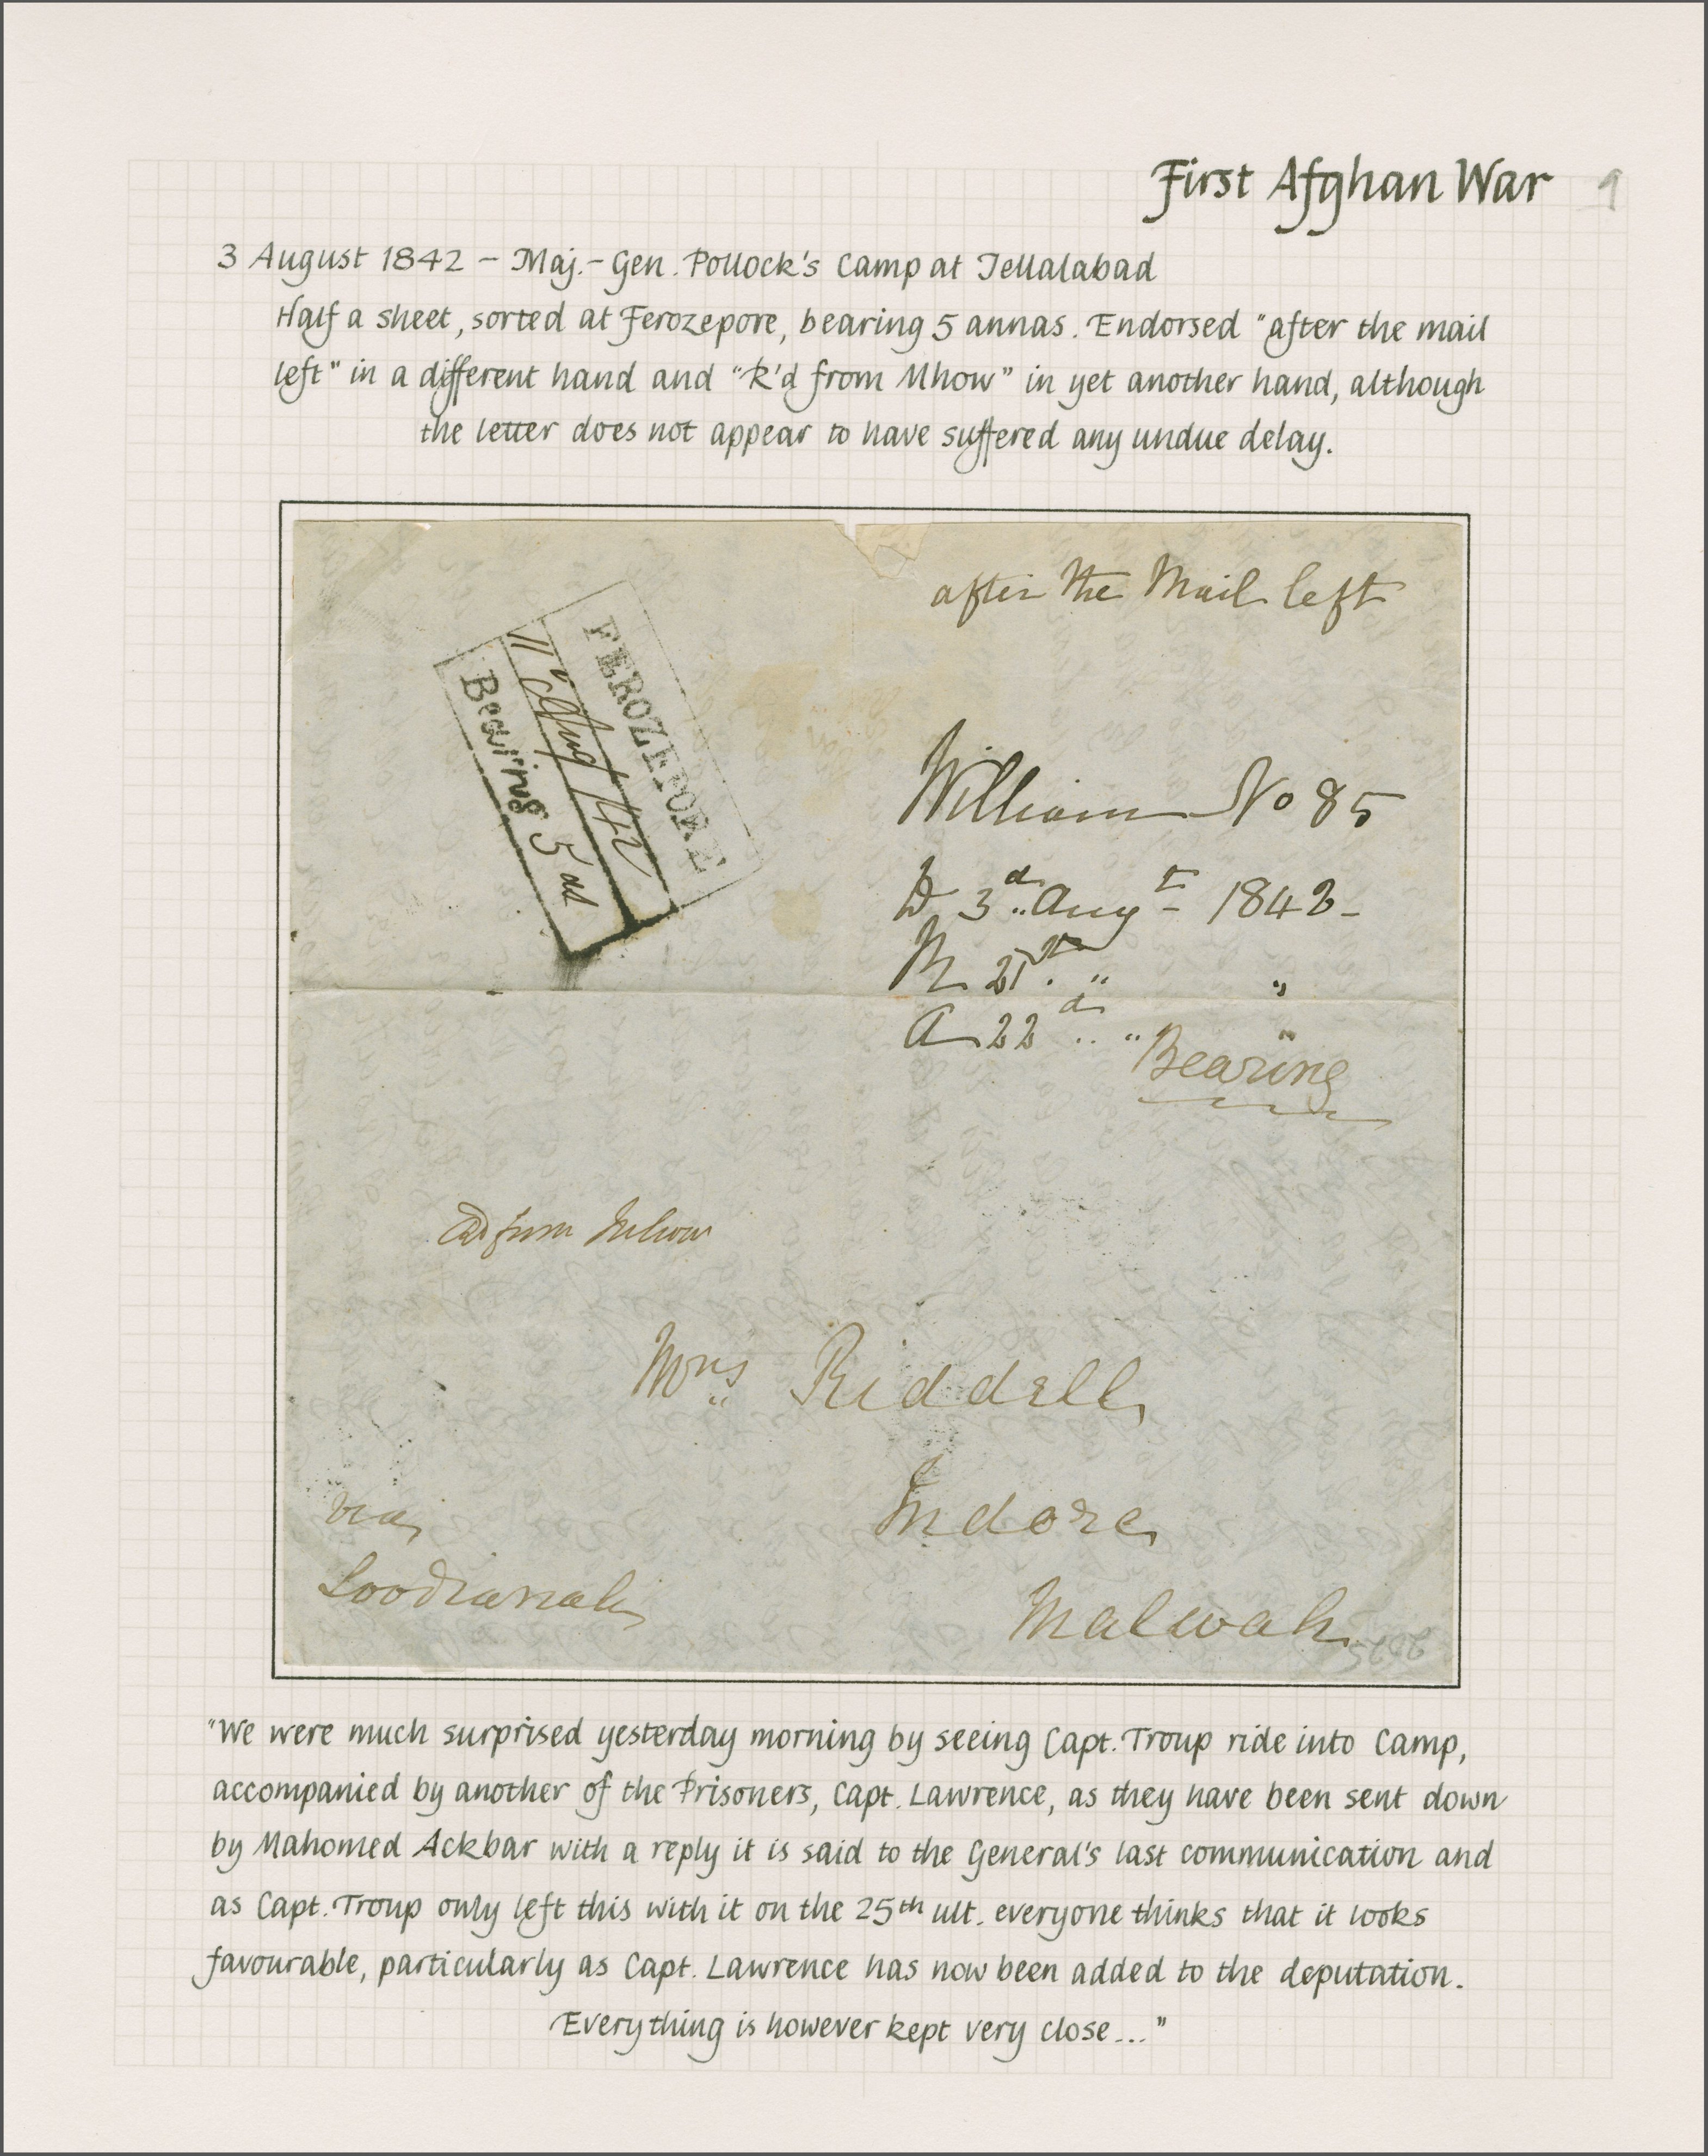 First Afghan War 9
3 August 1842 – Maj.-Gen. Pollock's Camp at Jellalabad
Half a sheet, sorted at Ferozepore, bearing 5 annas. Endorsed "after the mail
left" in a different hand and "R'd from Mhow" in yet another hand, although
the letter does not appear to have suffered any undue delay.
after the Mail left
FEROZEPORE
11 Aug 42
Bearing 5 as
William No 85
D 3d Augt 1842
R 21st " "
A 22d " "
Bearing
Rd from Mhow
Mrs Riddell
Indore
Malwah
via
Loodianah
"We were much surprised yesterday morning by seeing Capt. Troup ride into Camp,
accompanied by another of the Prisoners, Capt. Lawrence, as they have been sent down
by Mahomed Ackbar with a reply it is said to the General's last communication and
as Capt. Troup only left this with it on the 25th ult. everyone thinks that it looks
favourable, particularly as Capt. Lawrence has now been added to the deputation.
Everything is however kept very close..."